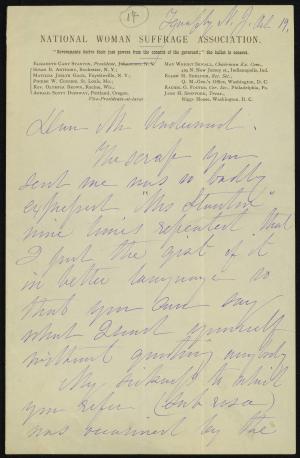 14
Tenafly N. J. Oct 19,
NATIONAL WOMAN SUFFRAGE ASSOCIATION.
"Governments derive their just powers from the consent of the governed;" the ballot is consent.
ELIZABETH CADY STANTON, President, N. Y.
SUSAN B. ANTHONY, Rochester, N. Y.;
MATILDA JOSLYN GAGE, Fayetteville, N. Y.;
PHOEBE W. COUZINS, St. Louis, Mo.;
REV. OLYMPIA BROWN, Racine, Wis.;
ABIGAIL SCOTT DUNIWAY, Portland, Oregon,
Vice-Presidents-at-large.
MAY WRIGHT SEWALL, Chairman Ex. Com.,
N. New Jersey st., Indianapolis, Ind.
ELLEN H. SHELDON, Rec. Sec.,
Q. M.-Gen's. Office, Washington, D. C.
RACHEL G. FOSTER, Cor. Sec., Philadelphia, Pa.
JANE H. SPOFFORD, Treas.,
Riggs House, Washington, D. C.
Dear Mr Underwood.
The scrap you
sent me was so badly
expressed "Mrs Stanton"
nine times repeated, that
I put the gist of it
in better language so
that you can say
what I send yourself
without quoting anybody
My to which
you refer (sub rosa)
was occasioned by the